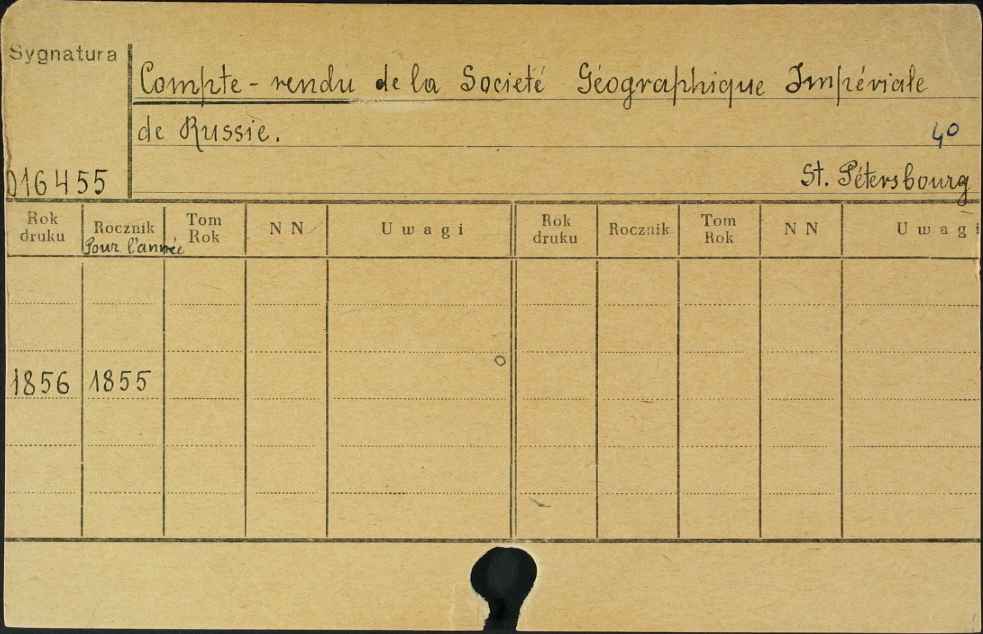 Sygnatura
Compte-rendu de la Societé Géographique Impériale
de Russie.
40
D16455
St. Pétersbourg
Rok druku Rocznik Tom Rok NN Uwagi Rok druku Rocznik Tom Rok NN Uwagi
Pour l'année
1856 1855